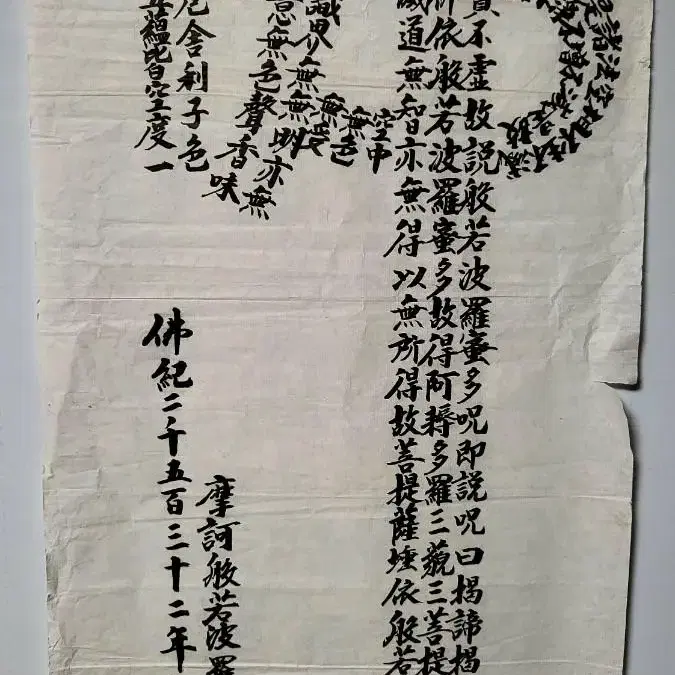 諸法空相不生不滅
不虛故說般若波羅蜜多呪即說呪曰揭諦揭
依般若波羅蜜多故得阿耨多羅三藐三菩提
滅道無智亦無得以無所得故菩提薩埵依般若
空中無色無受
識界無無明亦無
意無色聲香味
厄舍利子色
蘊皆空度一
摩訶般若波羅
佛紀二千五百三十二年